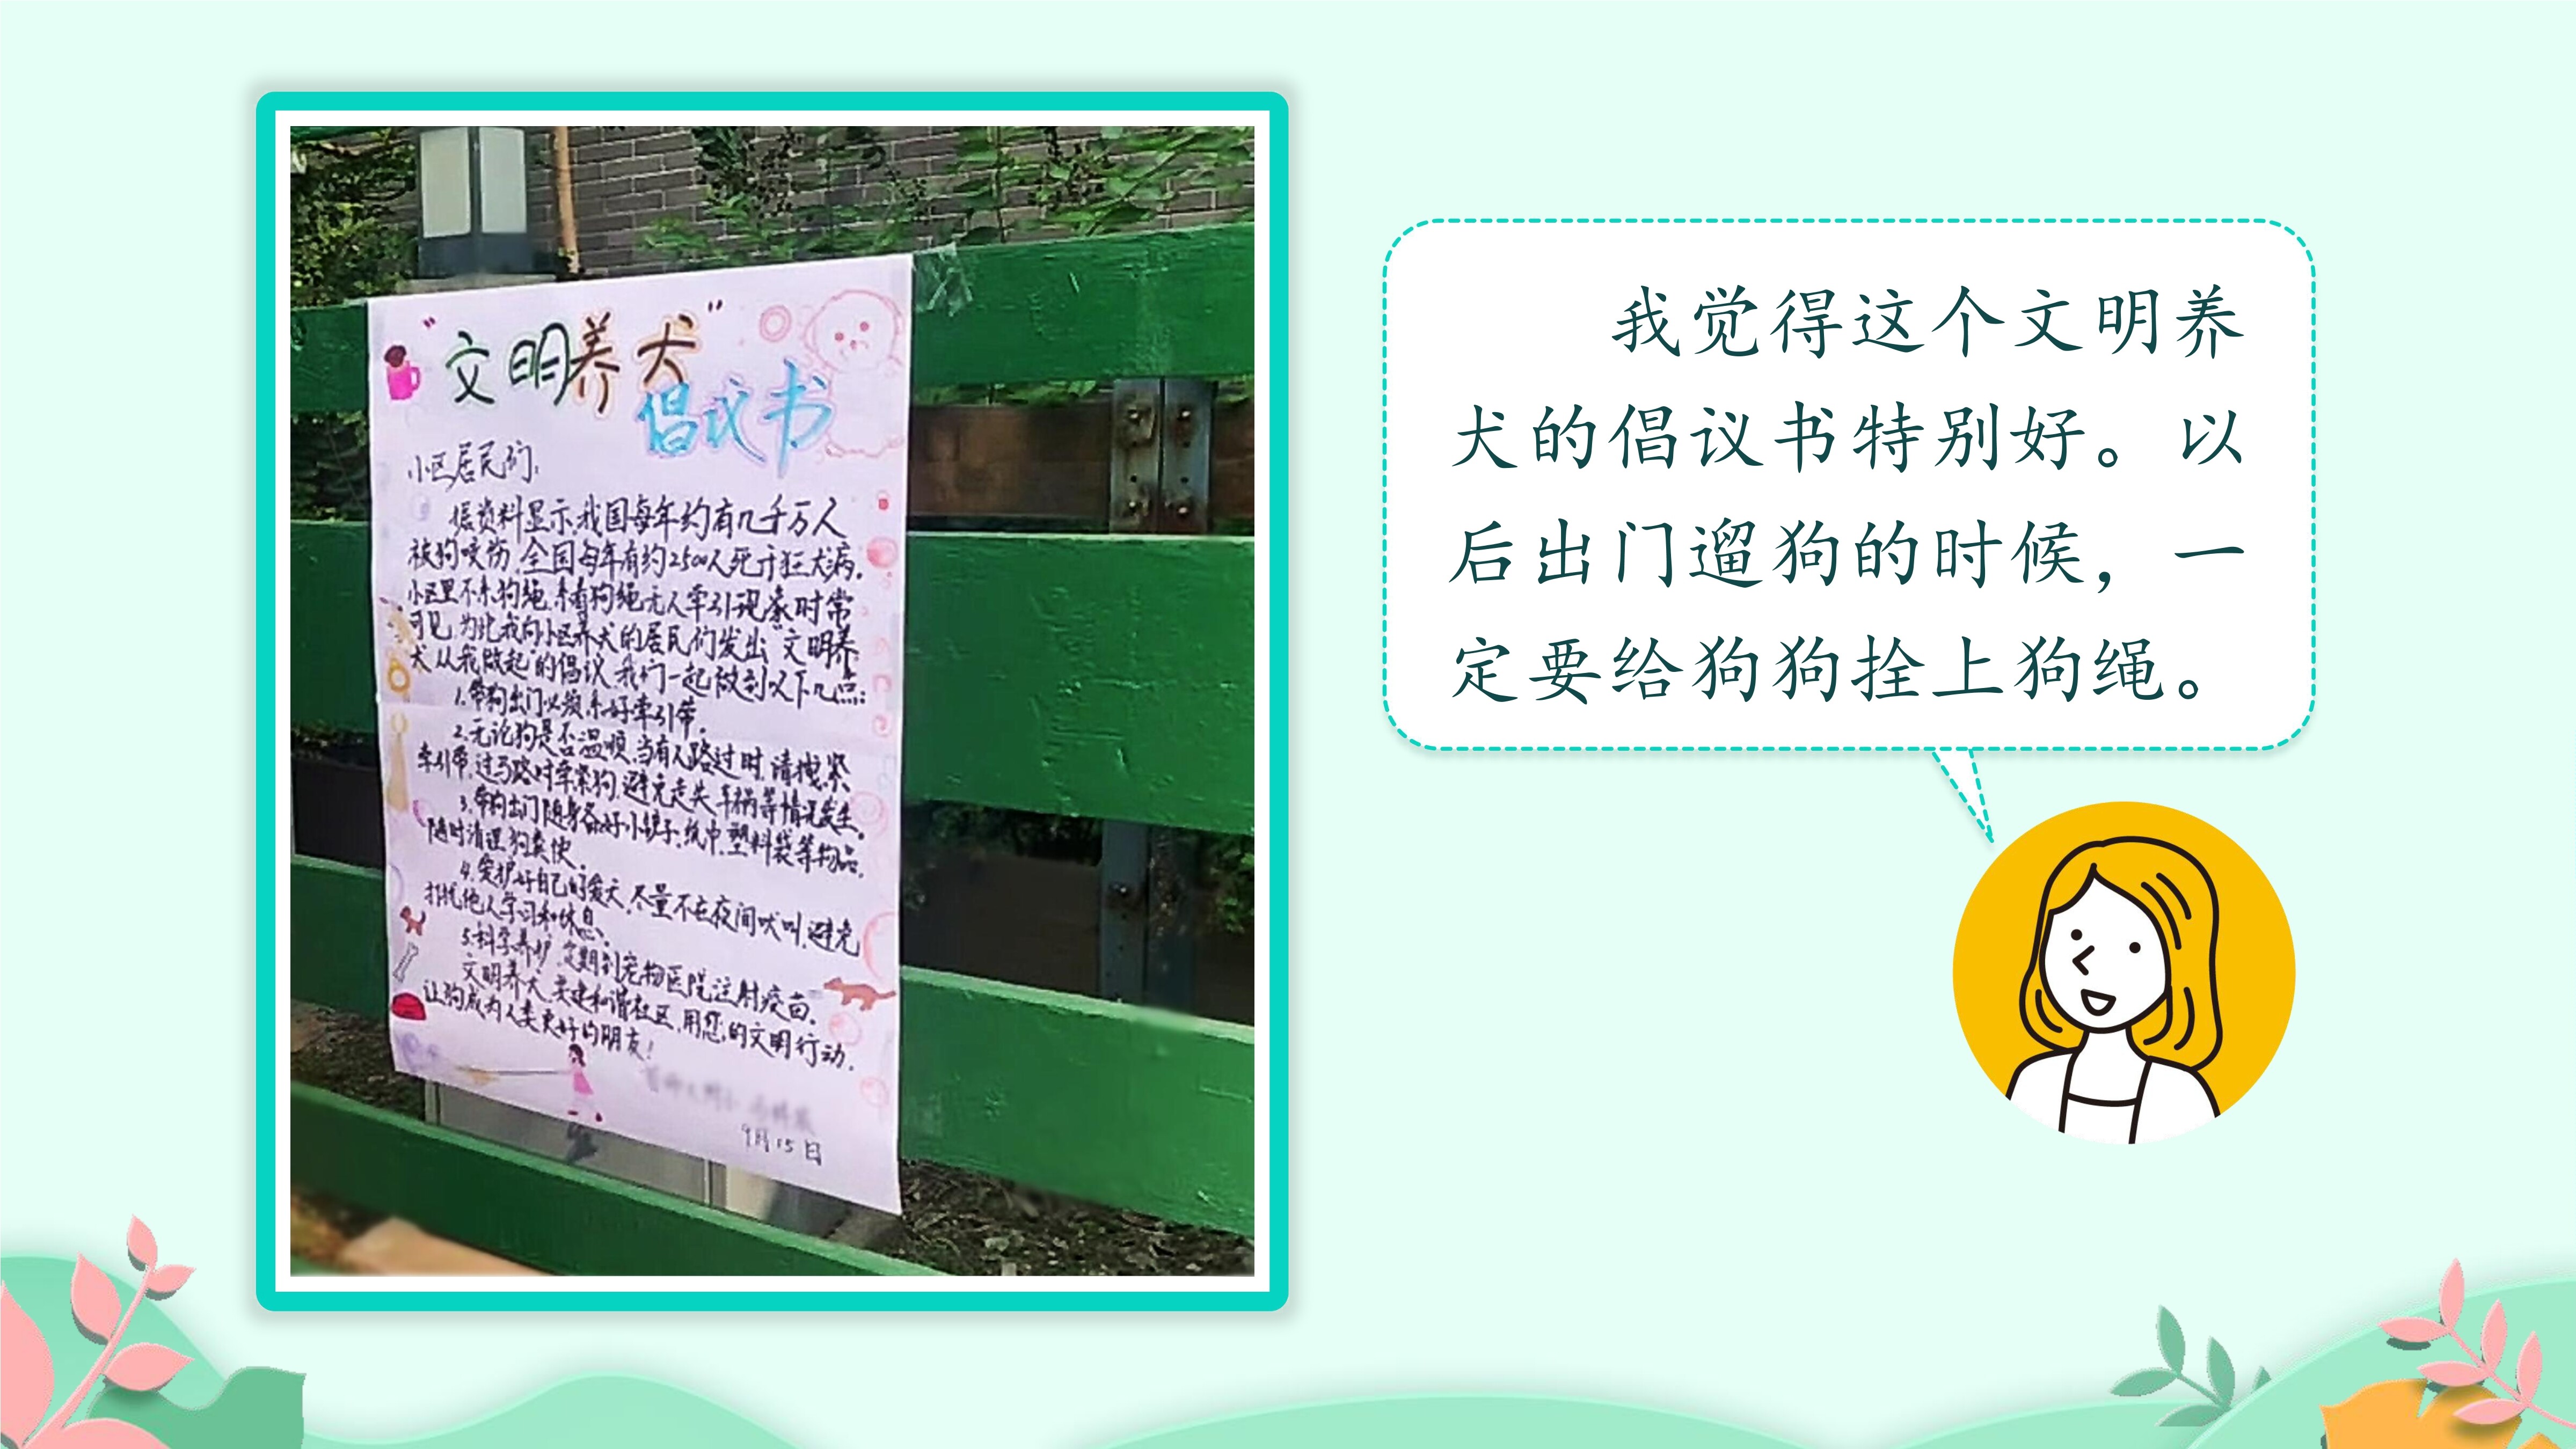 “文明养犬”
倡议书
小区居民们:
据资料显示,我国每年约有几千万人
被狗咬伤,全国每年有约2500人死于狂犬病.
小区里不系狗绳,系着狗绳无人牵引现象时常
可见.为此我向小区养犬的居民们发出“文明养
犬从我做起”的倡议.我们一起做到以下几点:
1.带狗出门必须系好牵引带.
2.无论狗是否温顺,当有人路过时,请拽紧
牵引带,过马路时牵紧狗,避免走失、车祸等情况发生.
3.带狗出门随身备好小铲子,纸巾,塑料袋等物品,
随时清理狗粪便.
4.爱护好自己的爱犬,尽量不在夜间吠叫,避免
打扰他人学习和休息.
5.科学养护,定期到宠物医院注射疫苗.
文明养犬,共建和谐社区,用您的文明行动.
让狗成为人类更好的朋友!
9月15日
我觉得这个文明养
犬的倡议书特别好。以
后出门遛狗的时候，一
定要给狗狗拴上狗绳。